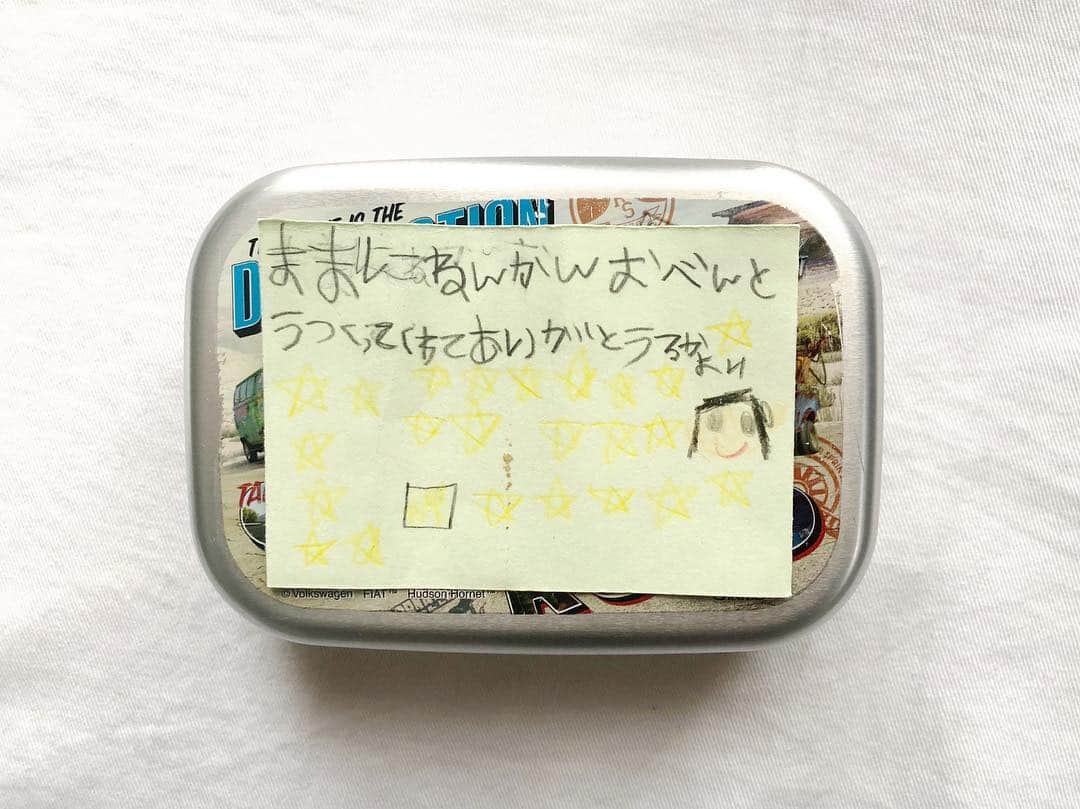 IS THE
まま ねんかん おべんと
うつくってくれてありがとうるか
より
©Volkswagen FIAT™ Hudson Hornet™